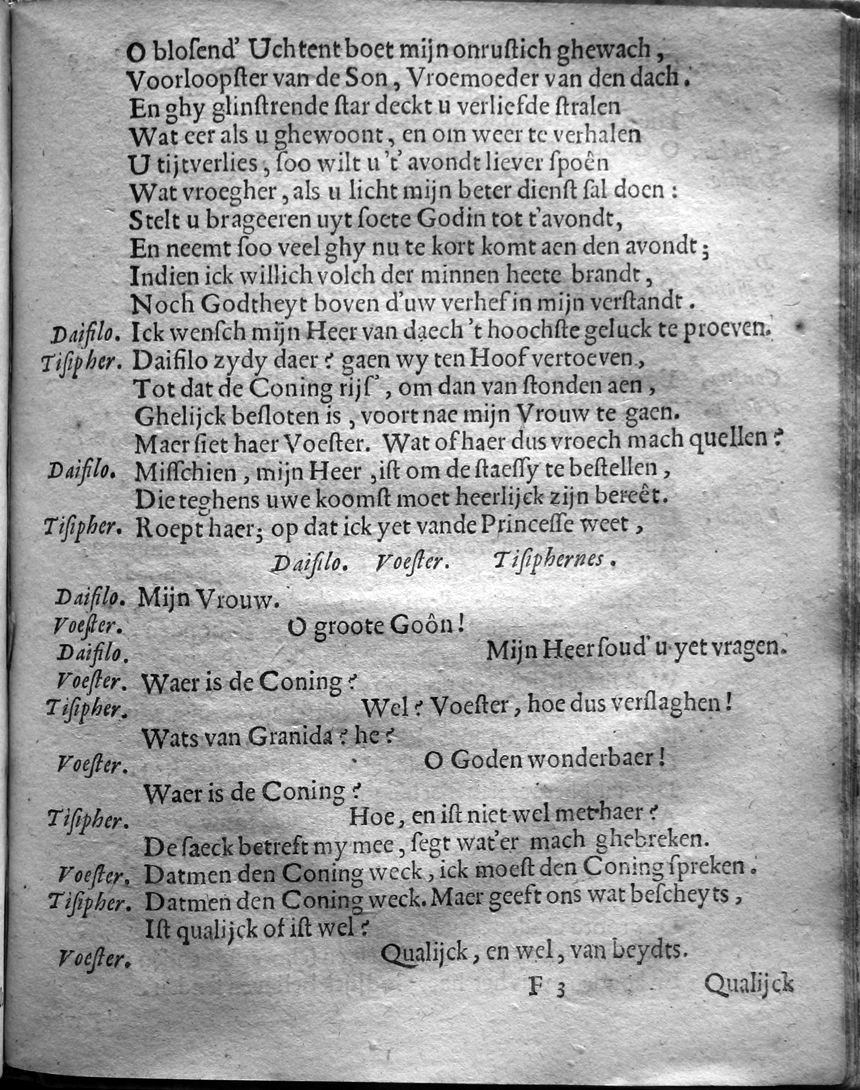 O bloſend' Uchtent boet mijn onruſtich ghewach,
Voorloopſter van de Son, Vroemoeder van den dach.
En ghy glinſtrende ſtar deckt u verliefde ſtralen
Wat eer als u ghewoont, en om weer te verhalen
U tijtverlies, ſoo wilt u 't' avondt liever ſpoên
Wat vroegher, als u licht mijn beter dienſt ſal doen:
Stelt u brageeren uyt ſoete Godin tot t'avondt,
En neemt ſoo veel ghy nu te kort komt aen den avondt;
Indien ick willich volch der minnen heete brandt,
Noch Godtheyt boven d'uw verhef in mijn verſtandt.
Daiſilo. Ick wenſch mijn Heer van daech 't hoochſte geluck te proeven.
Tiſipher. Daiſilo zydy daer? gaen wy ten Hoof vertoeven,
Tot dat de Coning rijſ', om dan van ſtonden aen,
Ghelijck beſloten is, voort nae mijn Vrouw te gaen.
Maer ſiet haer Voeſter. Wat of haer dus vroech mach quellen?
Daiſilo. Miſſchien, mijn Heer, iſt om de ſtaeſſy te beſtellen,
Die teghens uwe koomſt moet heerlijck zijn bereêt.
Tiſipher. Roept haer; op dat ick yet vande Princeſſe weet,
Daiſilo. Voeſter. Tiſiphernes.
Daiſilo. Mijn Vrouw.
Voeſter. O groote Goôn!
Daiſilo. Mijn Heer ſoud' u yet vragen.
Voeſter. Waer is de Coning?
Tiſipher. Wel? Voeſter, hoe dus verſlaghen!
Wats van Granida? he?
Voeſter. O Goden wonderbaer!
Waer is de Coning?
Tiſipher. Hoe, en iſt niet wel met haer?
De ſaeck betreft my mee, ſegt wat'er mach ghebreken.
Voeſter. Datmen den Coning weck, ick moeſt den Coning ſpreken.
Tiſipher. Datmen den Coning weck. Maer geeft ons wat beſcheyts,
Iſt qualijck of iſt wel?
Voeſter. Qualijck, en wel, van beydts.
F 3 Qualijck